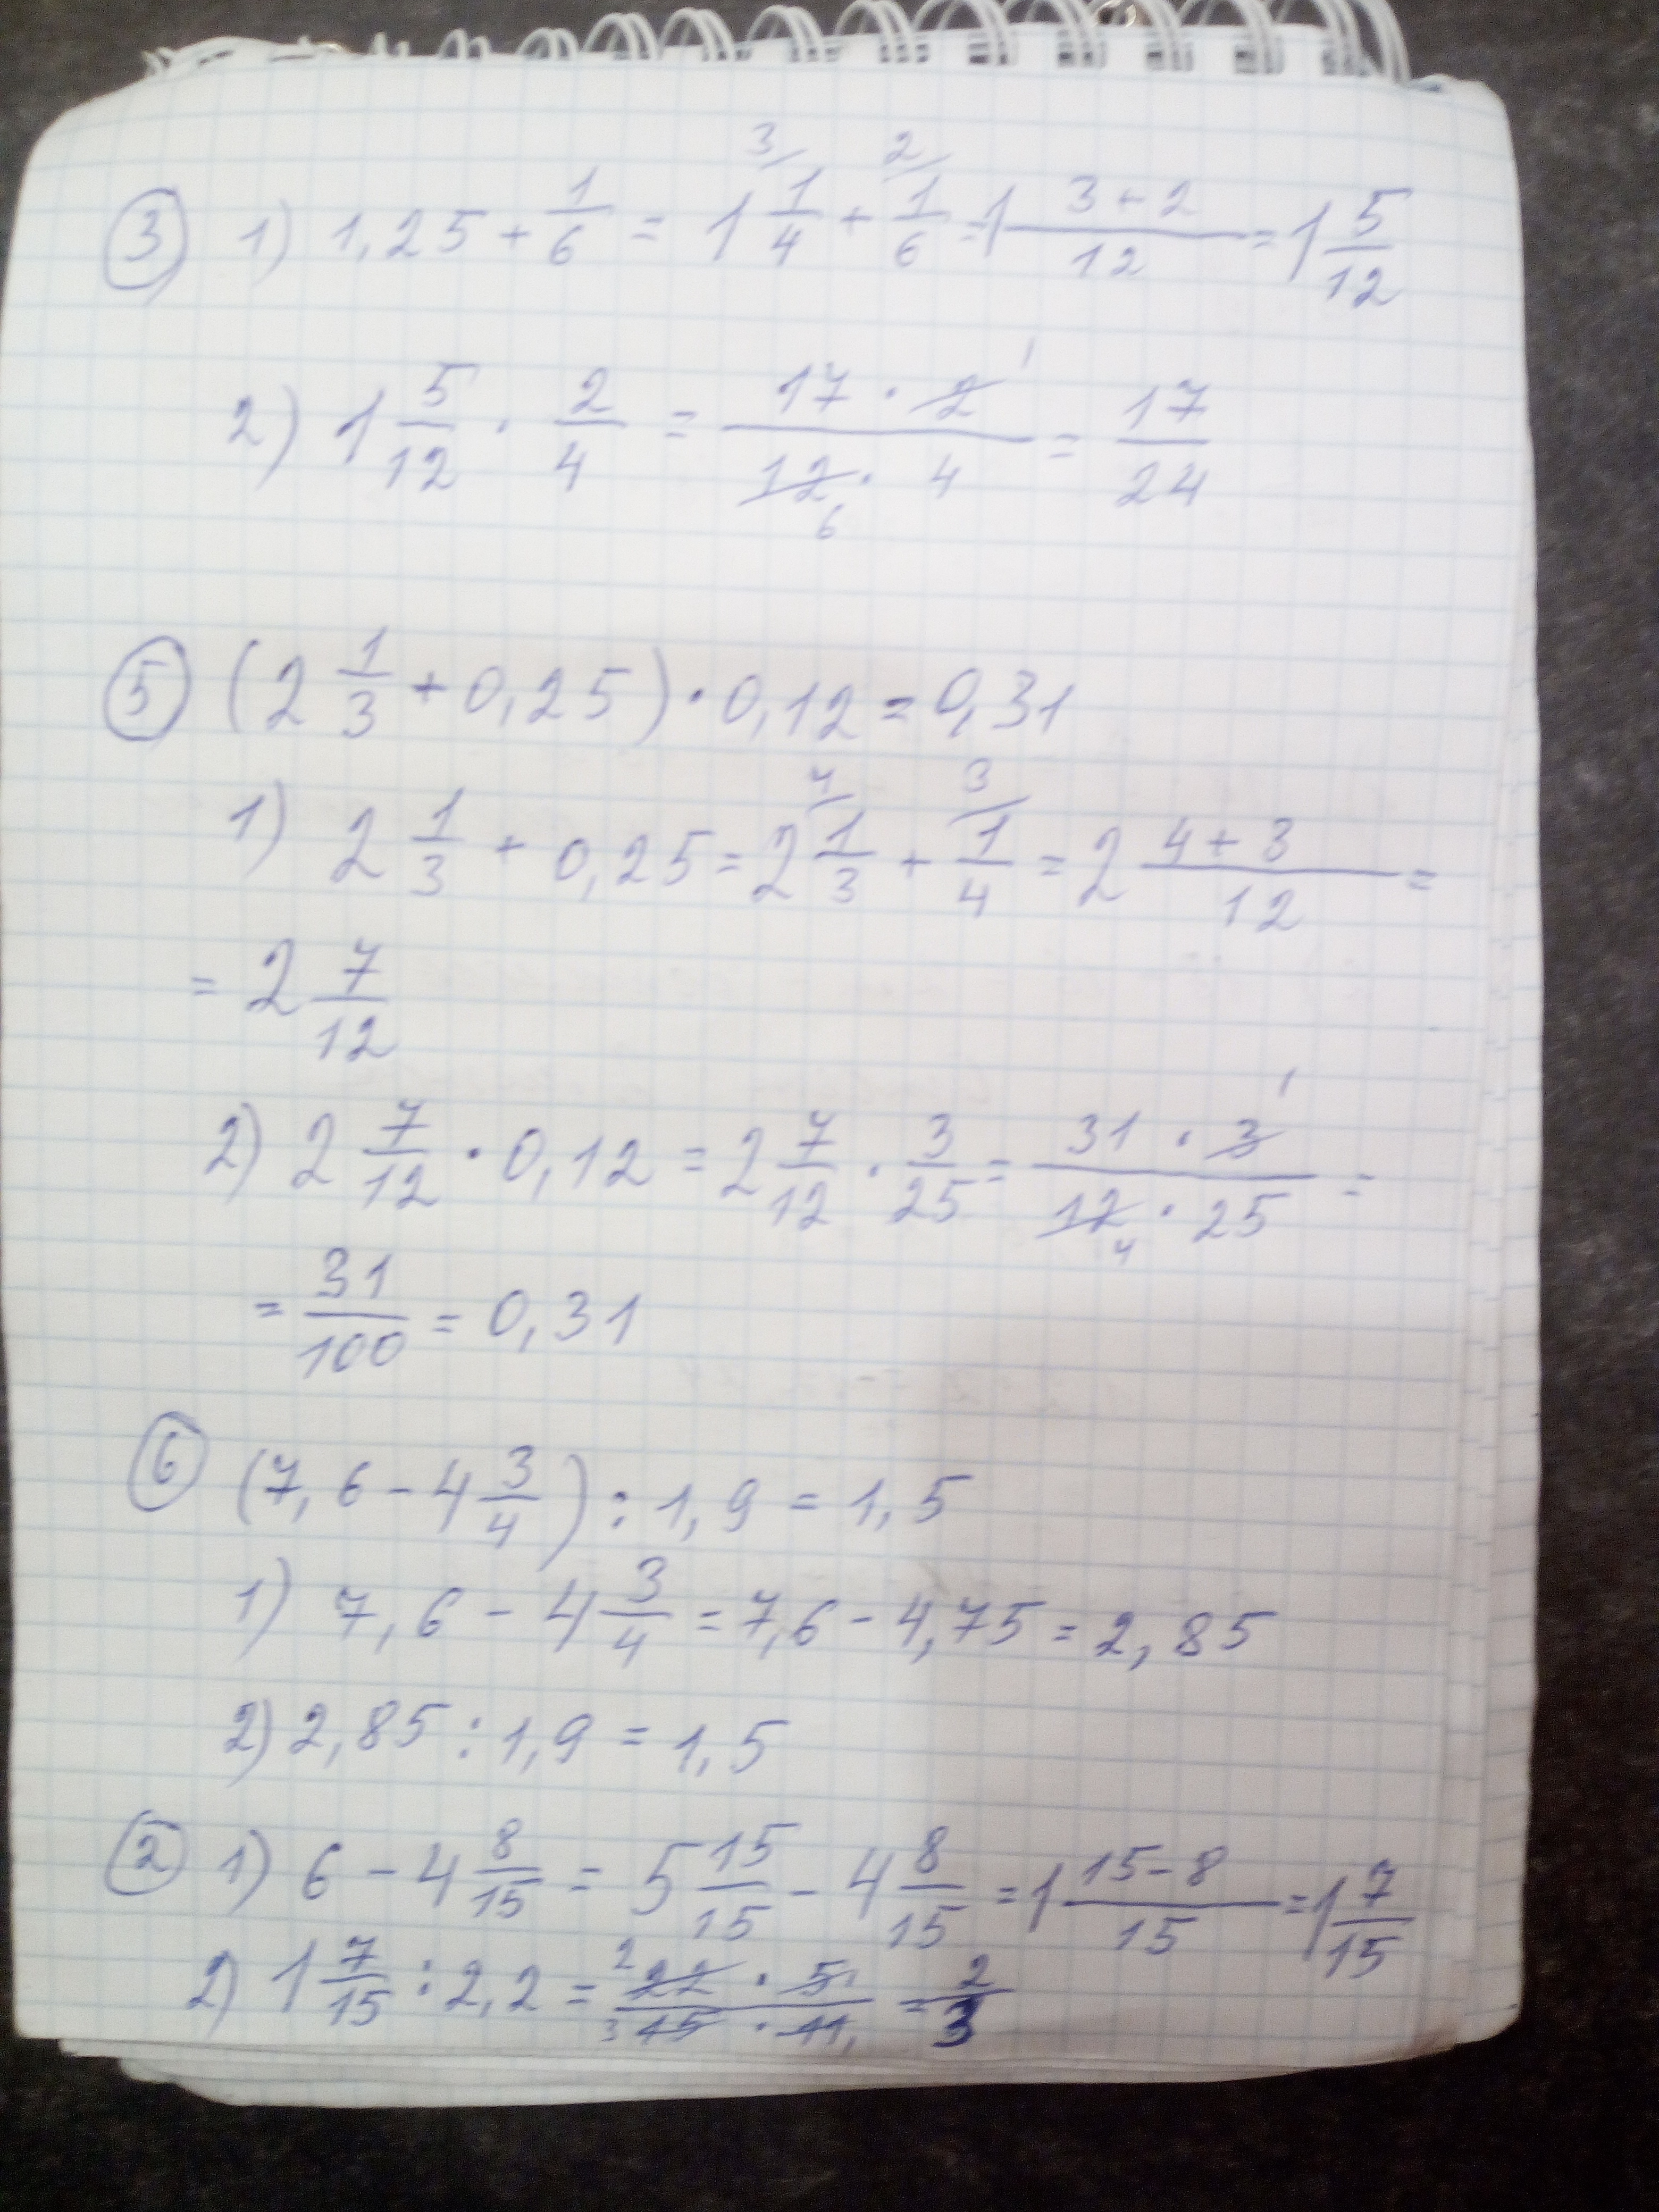 ③ 1) 1,25 + 1/6 = 1 1/4 (3/) + 1/6 (2/) = 1 (3+2)/12 = 1 5/12
2) 1 5/12 · 2/4 = (17 · 2 1)/(12 6 · 4) = 17/24
⑤ (2 1/3 + 0,25) · 0,12 = 0,31
1) 2 1/3 + 0,25 = 2 1/3 (4/) + 1/4 (3/) = 2 (4+3)/12 =
= 2 7/12
2) 2 7/12 · 0,12 = 2 7/12 · 3/25 = (31 · 3 1)/(12 4 · 25) =
= 31/100 = 0,31
⑥ (7,6 - 4 3/4) : 1,9 = 1,5
1) 7,6 - 4 3/4 = 7,6 - 4,75 = 2,85
2) 2,85 : 1,9 = 1,5
② 1) 6 - 4 8/15 = 5 15/15 - 4 8/15 = 1 (15-8)/15 = 1 7/15
2) 1 7/15 : 2,2 = (2 22 · 5 1)/(3 15 · 11 1) = 2/3